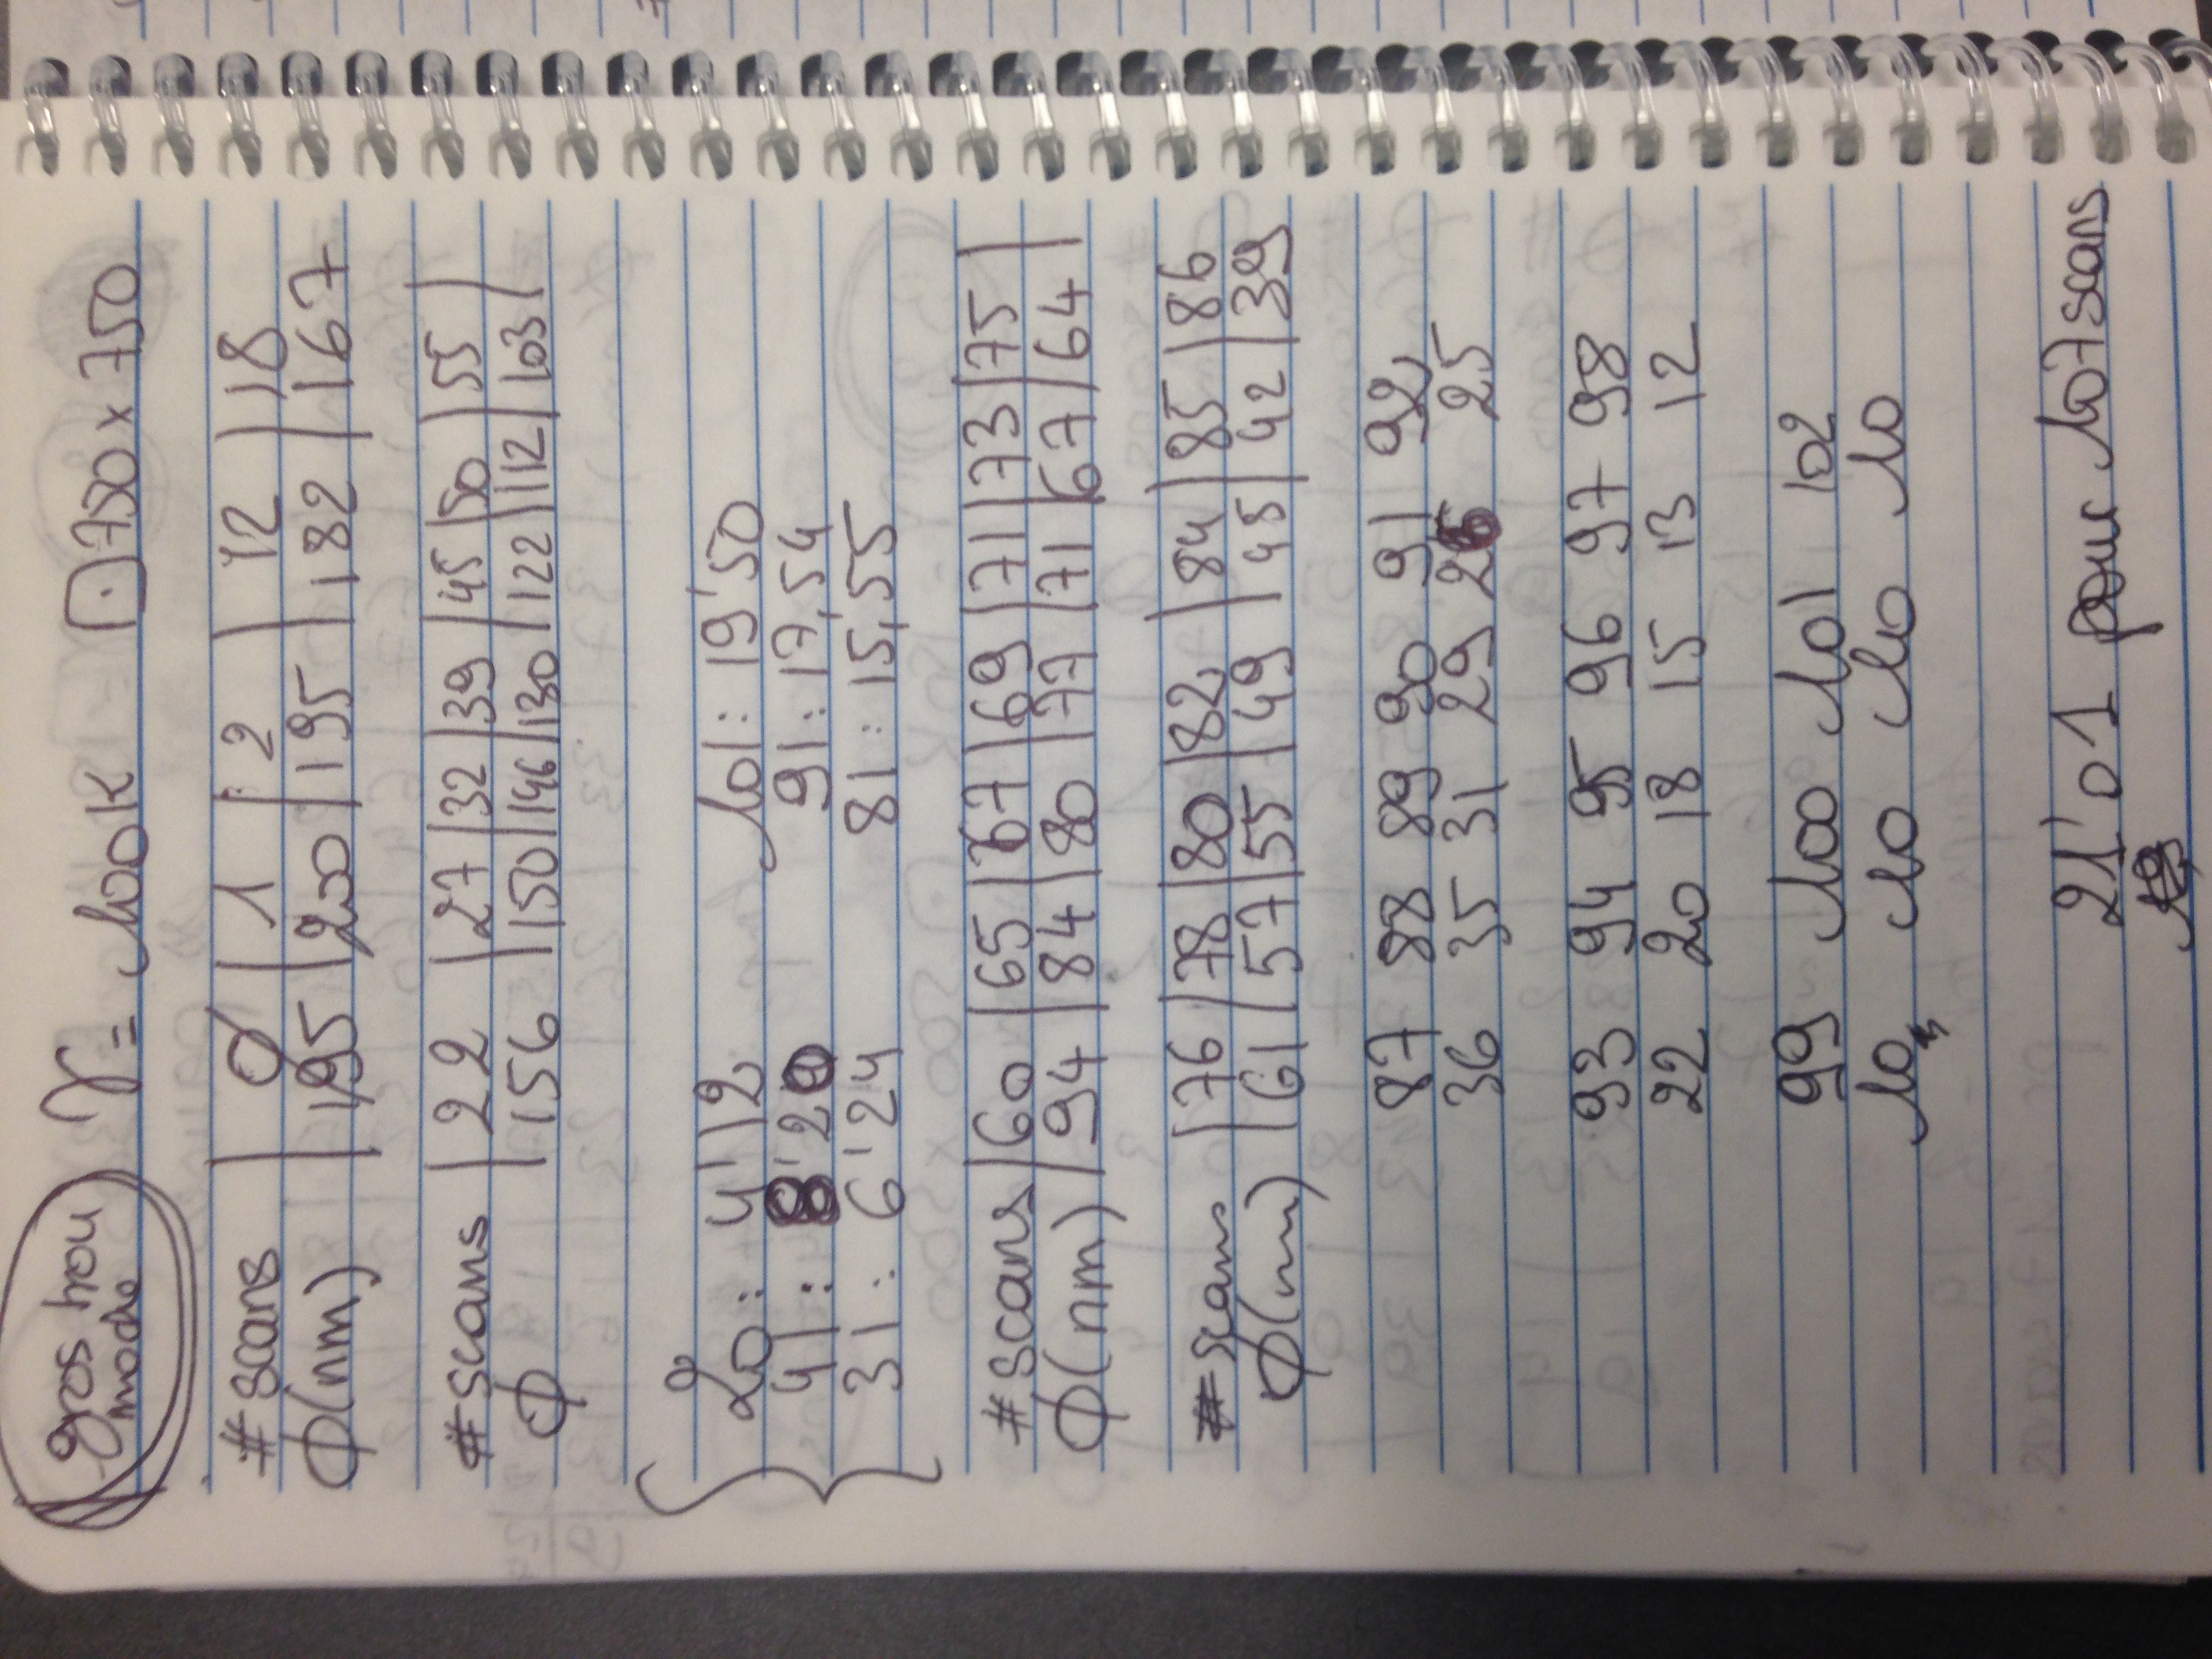 gros trou
moche
γ = 100K ⊡ 750 x 750
# scans | 0 | 1 | 2 | 12 | 18
ϕ(nm) | 195 | 200 | 195 | 182 | 167
# scans | 22 | 27 | 32 | 39 | 45 | 50 | 55 |
ϕ | 156 | 150 | 146 | 130 | 122 | 112 | 103 |
20 : 4'12 101 : 19'50
41 : 8'20 91 : 17,54
31 : 6'24 81 : 15,55
# scans | 60 | 65 | 67 | 69 | 71 | 73 | 75 |
ϕ(nm) | 94 | 84 | 80 | 77 | 71 | 67 | 64 |
# scans | 76 | 78 | 80 | 82 | 84 | 85 | 86
ϕ(nm) | 61 | 57 | 55 | 49 | 45 | 42 | 39
87 88 89 90 91 92
36 35 31 29 26 25
93 94 95 96 97 98
22 20 18 15 13 12
99 100 101 102
10 10 10 10
21'01 pour 107 scans